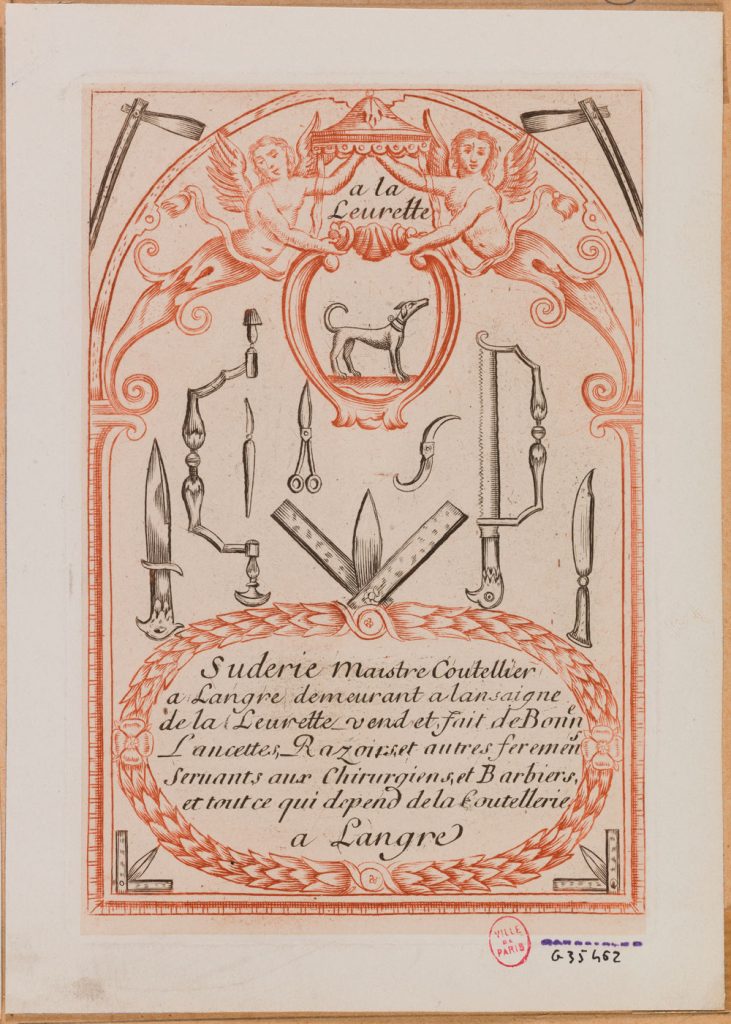 a la
Leurette
Suderie Maistre Coutellier
a Langre demeurant a lansaigne
de la Leurette vend et fait de Bonn es
Lancettes, Razoirs, et autres feremen s
Seruants aux Chirurgiens, et Barbiers,
et tout ce qui depend de la Coutellerie
a Langre
VILLE
DE
PARIS
G 35462